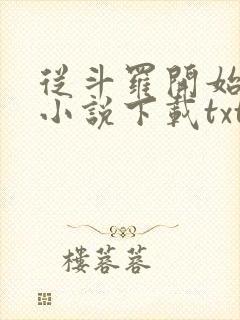 從斗羅開始
小說下載txt
樓蓉蓉